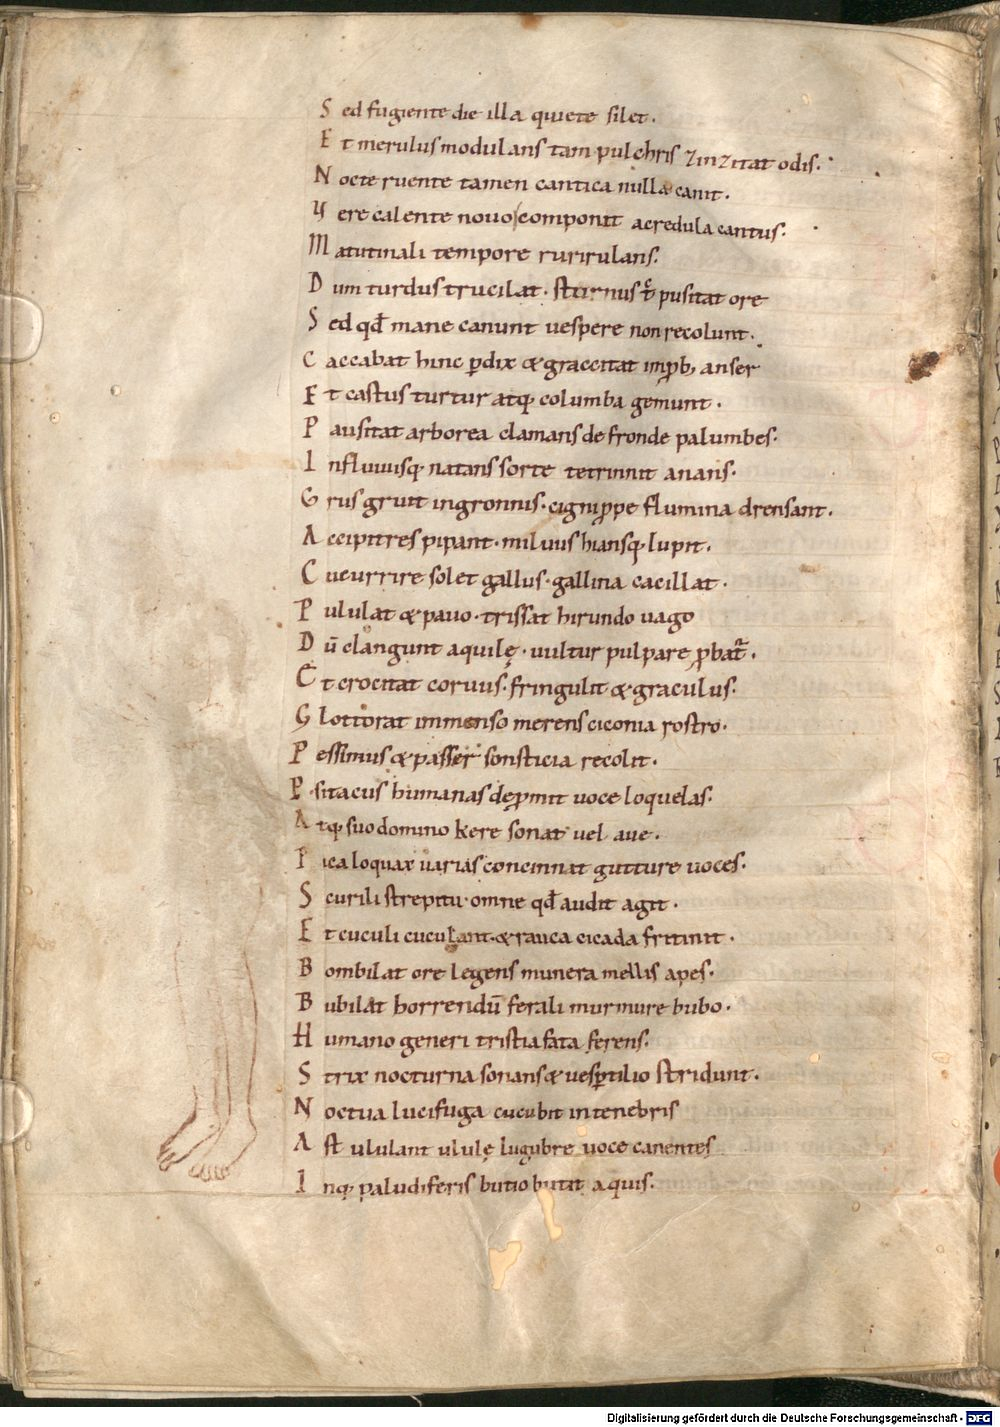 S ed fugiente die illa quiete silet.
E t merulus modulans tam pulchris zinzitat odis.
N octe ruente tamen cantica nulla canit.
V ere calente novo componit acredula cantus.
M atutinali tempore rurirulans.
D um turdus trucilat. sturnus t̄ pusitat ore
S ed qđ mane canunt uespere non recolunt.
C accabat hinc ꝑdix & graccitat impꝛob; anser
E t castus turtur atq; columba gemunt.
P ausitat arborea clamans de fronde palumbes.
I nfluuiisq; natans sorte tetrinnit anans.
G rus gruit in gronnis. cigni ꝓpe flumina drensant.
A ccipitres pipant. miluus hiansq; lupit.
C ucurrire solet gallus. gallina cacillat.
P ululat & pauo. trissat hirundo uago
D ū clangunt aquilę. uultur pulpare ꝓbat᷑.
E t crocitat coruus. fringulit & graculus.
G lottorat immenso merens ciconia rostro.
P essimus & passer sonsticia recolit.
P sitacus humanas deꝓmit uoce loquelas.
A tq; suo domino kere sonat uel aue.
P ica loquax uarias concinnat gutture uoces.
S curili strepitu. omne qđ audit agit.
E t cuculi cuculant. & rauca cicada fritinit.
B ombilat ore legens munera mellis apes.
B ubilat horrendū ferali murmure bubo.
H umano generi tristia fata ferens.
S trix nocturna sonans & uesꝑtilio stridunt.
N octua lucifuga cucubit in tenebris
A st ululant ululę lugubre uoce canentes
I nq; paludiferis butio butit aquis.
Digitalisierung gefördert durch die Deutsche Forschungsgemeinschaft - DFG